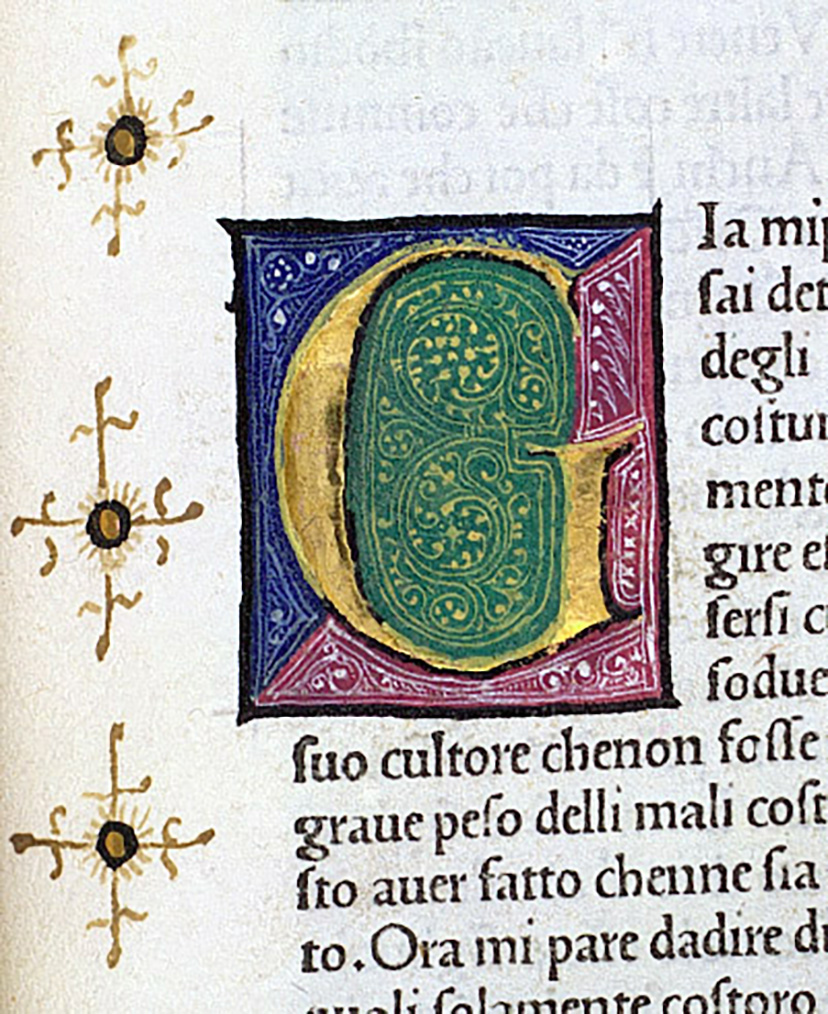 G
Ia mi
ſai det
degli
coſtu
ment
gire
ſerſi
ſodue
ſuo cultore chenon foſſe
graue peſo delli mali coſt
ſto auer fatto chenne ſia
to. Ora mi pare dadire
quali ſolamente coſtoro